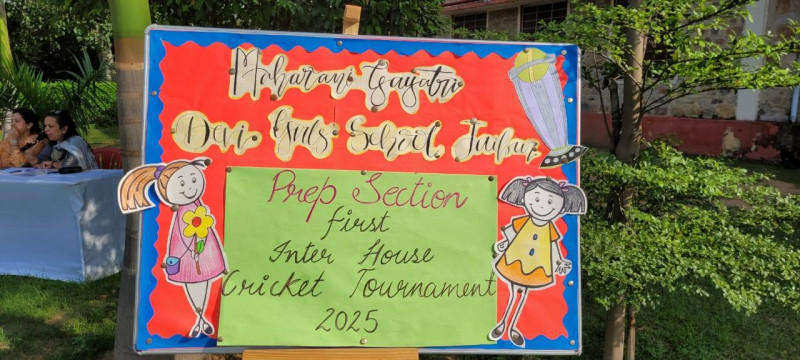 Maharani Gayatri
Devi Girls School Jaipur
Prep Section
First
Inter House
Cricket Tournament
2025